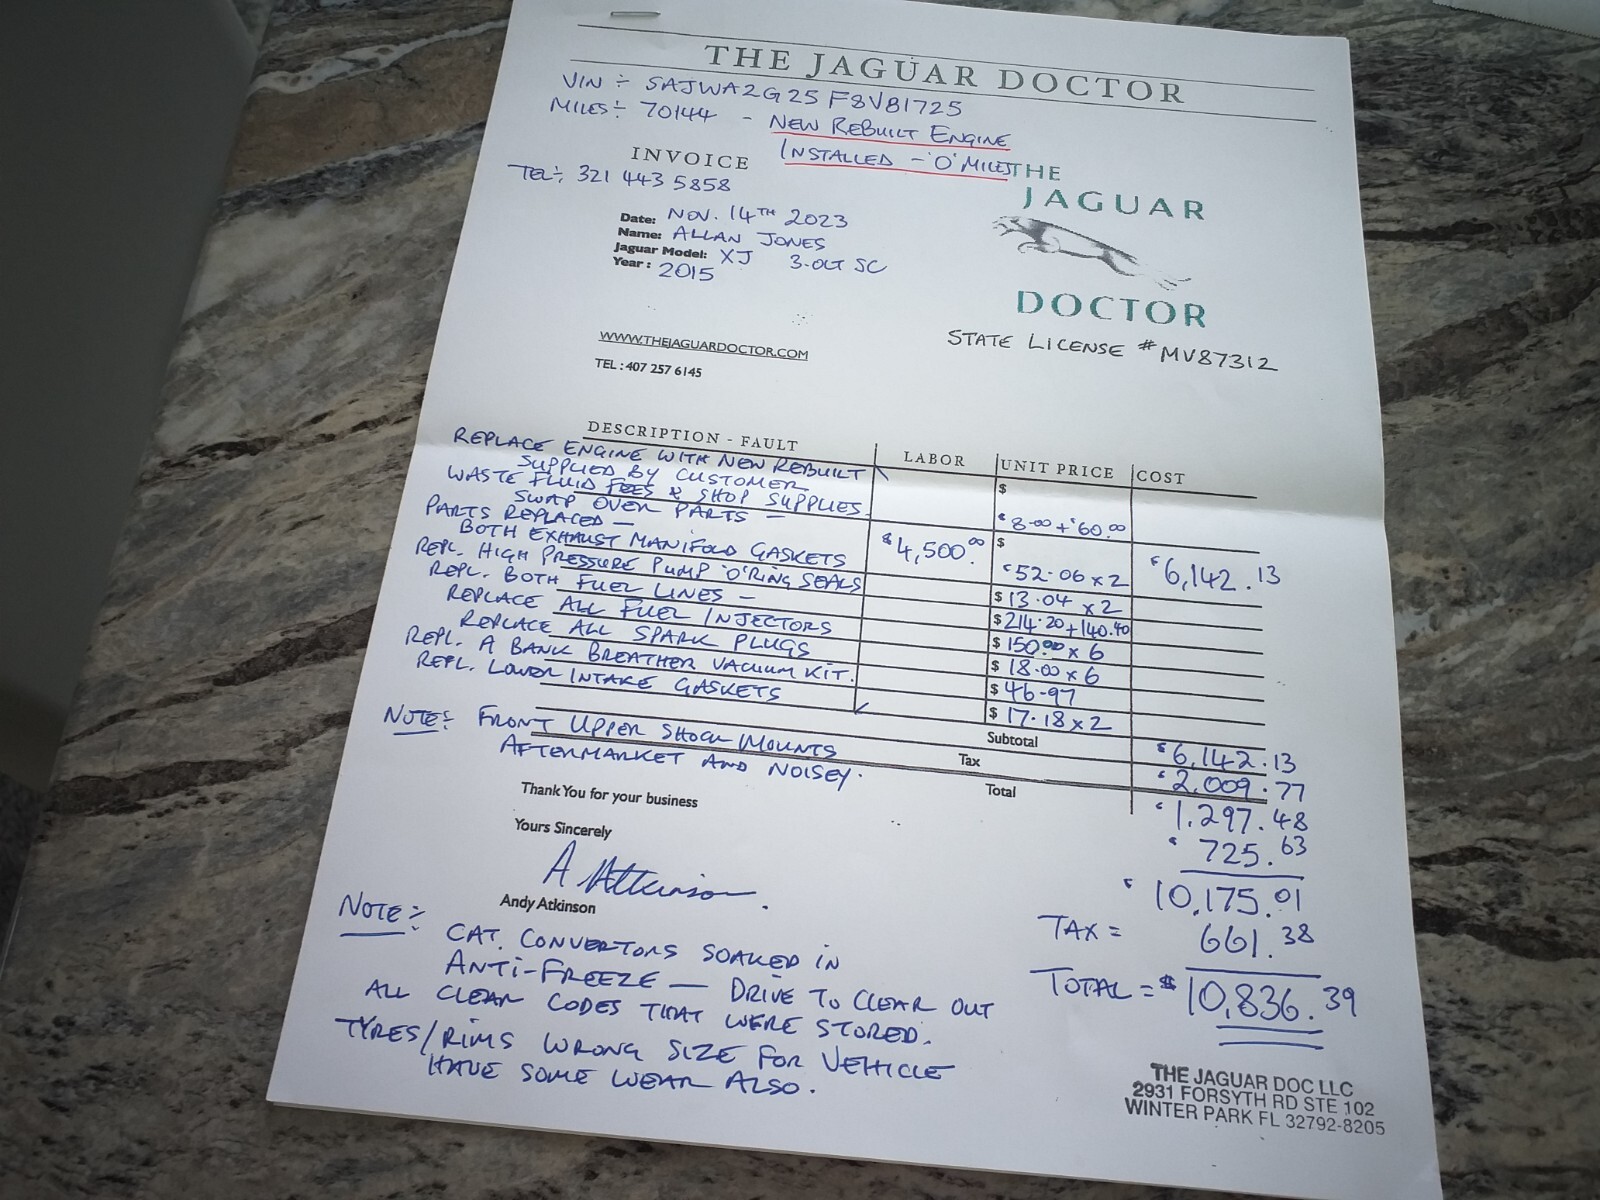 THE JAGUAR DOCTOR
VIN ÷ SAJWA2G25F8V81725
MILES ÷ 70144 - NEW REBUILT ENGINE
INSTALLED - 'O' MILES
INVOICE
TEL ÷ 321 443 5858
Date: NOV. 14TH 2023
Name: ALLAN JONES
Jaguar Model: XJ 3.0LT SC
Year: 2015
THE
JAGUAR
DOCTOR
STATE LICENSE # MV87312
WWW.THEJAGUARDOCTOR.COM
TEL : 407 257 6145
DESCRIPTION - FAULT LABOR UNIT PRICE COST
REPLACE ENGINE WITH NEW REBUILT
SUPPLIED BY CUSTOMER $
WASTE FLUID FEES & SHOP SUPPLIES $8.00 + $60.00
SWAP OVER PARTS -
PARTS REPLACED - $
BOTH EXHAUST MANIFOLD GASKETS $4,500.00 $52.06 x 2 $6,142.13
REPL. HIGH PRESSURE PUMP 'O' RING SEALS $13.04 x 2
REPL. BOTH FUEL LINES - $214.20 + 140.40
REPLACE ALL FUEL INJECTORS $150.00 x 6
REPLACE ALL SPARK PLUGS $18.00 x 6
REPL. A BANK BREATHER VACUUM KIT. $46-97
REPL. LOWER INTAKE GASKETS $17.18 x 2
Subtotal $6,142.13
NOTE ÷ FRONT UPPER SHOCK MOUNTS
AFTERMARKET AND NOISEY.
Tax $2,009.77
Total $1,297.48
$725.63
$10,175.01
TAX = 661.38
TOTAL = $10,836.39
Thank You for your business
Yours Sincerely
A Atkinson.
Andy Atkinson
NOTE ÷
CAT. CONVERTORS SOAKED IN
ANTI-FREEZE — DRIVE TO CLEAR OUT
ALL CLEAR CODES THAT WERE STORED.
TYRES/RIMS WRONG SIZE FOR VEHICLE
HAVE SOME WEAR ALSO.
THE JAGUAR DOC LLC
2931 FORSYTH RD STE 102
WINTER PARK FL 32792-8205